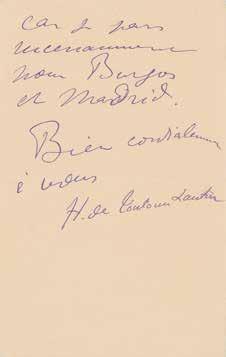 car je pars
incessamment
pour Burgos
et Madrid.
Bien cordialement
à vous
H. de Toulouse Lautrec